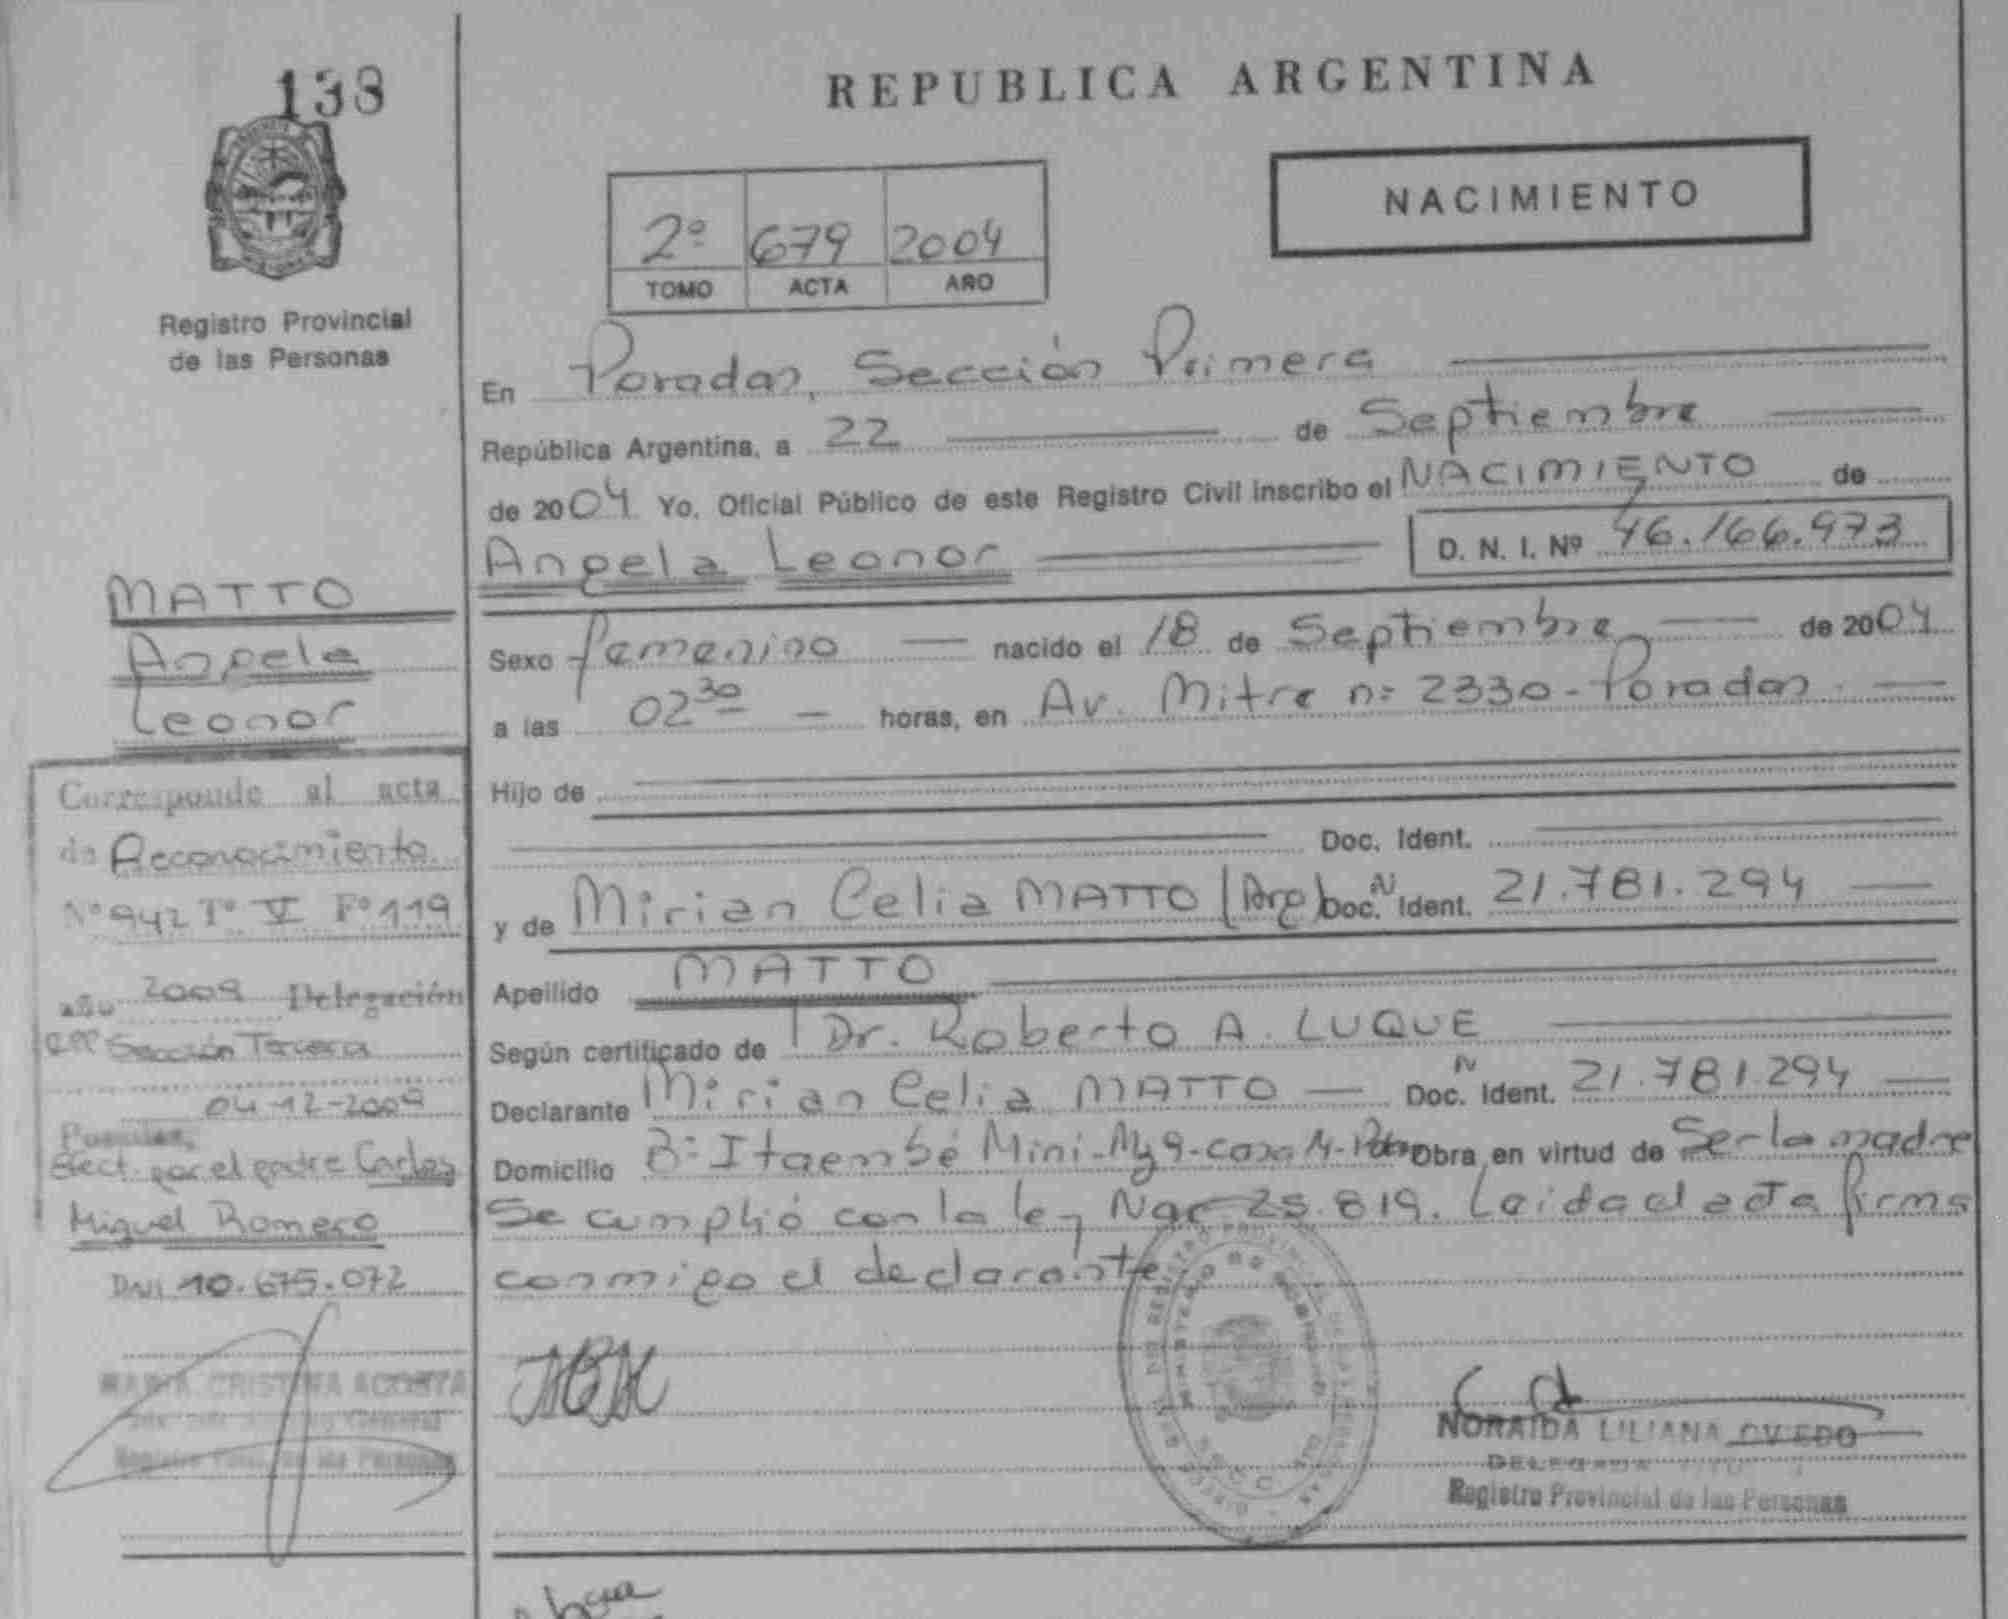 138
REPUBLICA ARGENTINA
NACIMIENTO
2º 679 2004
TOMO ACTA AÑO
Registro Provincial
de las Personas
En Posadas, Sección Primera
República Argentina, a 22 de Septiembre
de 2004 Yo, Oficial Público de este Registro Civil inscribo el NACIMIENTO de
Angela Leonor D. N. I. Nº 46.166.973
MATTO
Angela
Leonor
Sexo femenino nacido el 18 de Septiembre de 2004
a las 02 30 horas, en Av. Mitre nº 2330 - Posadas
Hijo de
Doc. Ident.
y de Mirian Celia MATTO (Arg) Doc. N Ident. 21.781.294
Apellido MATTO
Según certificado de Dr. Roberto A. LUQUE
Declarante Mirian Celia MATTO Doc. N Ident. 21.781.294
Domicilio Bº Itaembé Mini - Mz 9 - casa Obra en virtud de Ser la madre
Se cumplió con la ley Nac 25.819. Leida el acta firma
conmigo el declarante
Corresponde al acta
de Reconocimiento
Nº 942 Tº V Fº 119
año 2009 Delegación
Sección Tercera
04-12-2009
Posadas,
Efect. por el padre Carlos
Miguel Romero
DNI 10.675.072
MARIA CRISTINA ACOSTA
General
Registro Provincial de las Personas
NORAIDA LILIANA OVIEDO
DELEGADA
Registro Provincial de las Personas